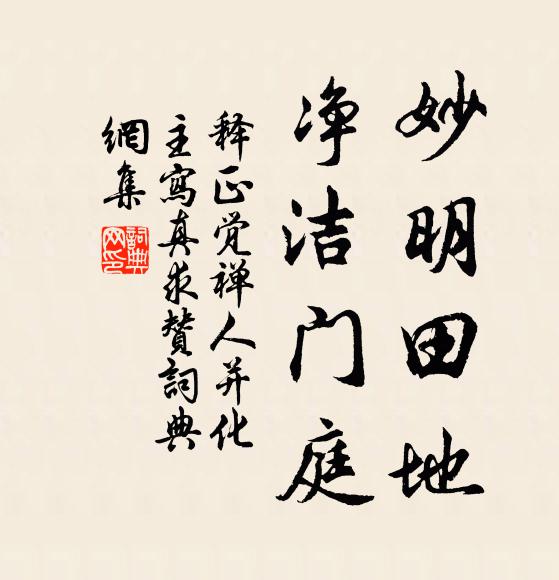 妙明田地
净洁门庭
释正觉禅人并化
主寫真求赞詞典
網集
詞典网印